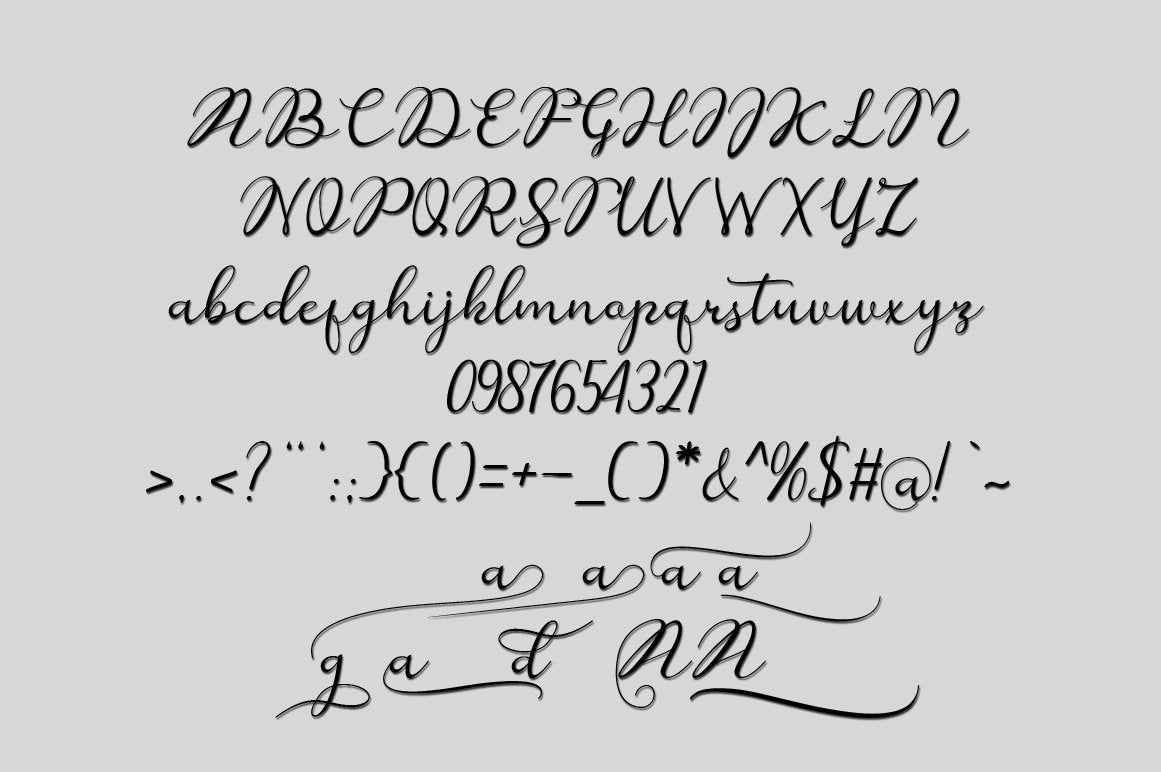 ABCDEFGHIJKLM
NOPQRSTUVWXYZ
abcdefghijklmnopqrstuvwxyz
0987654321
>,.<?"':;}{()=+-_()*&^%$#@!`~
a a a a
g a d A A